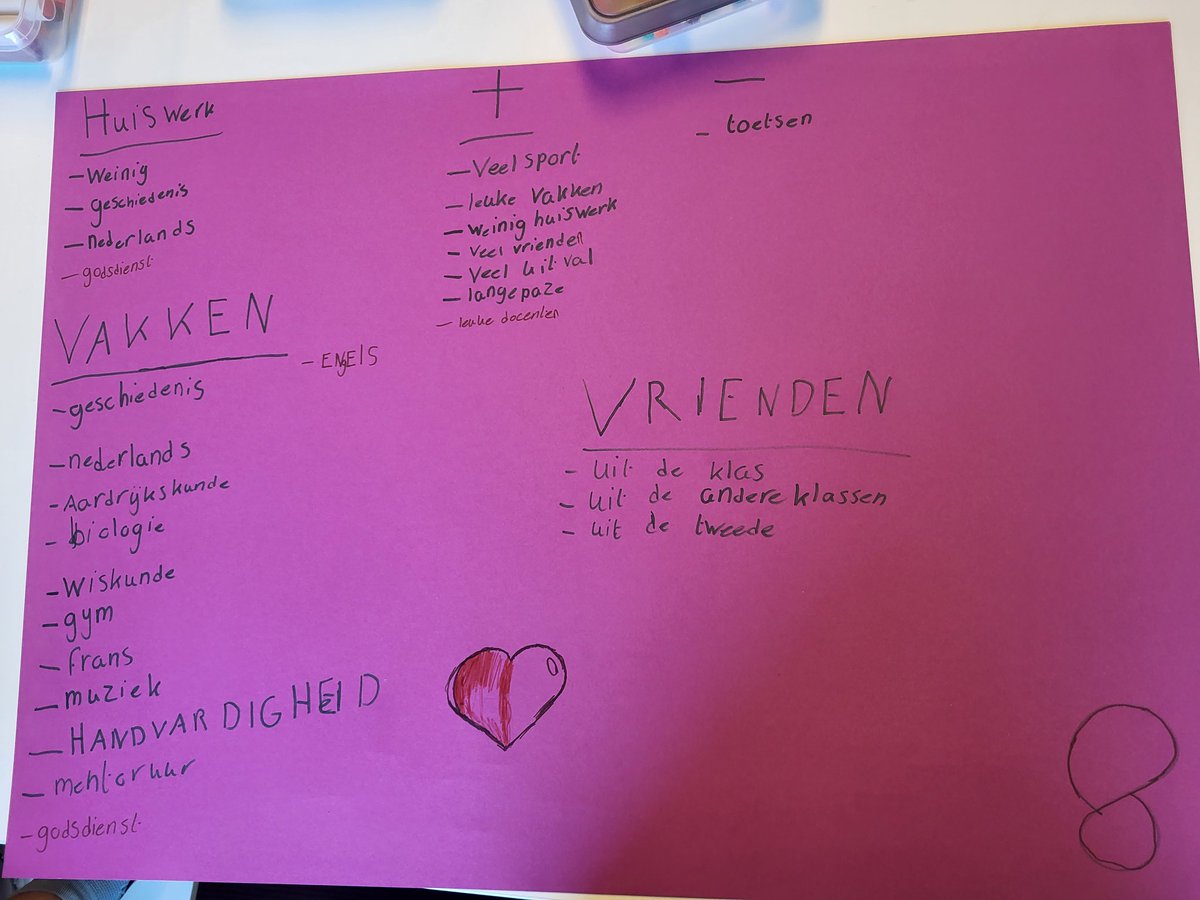 Huiswerk
- Weinig
- geschiedenis
- nederlands
- godsdienst
VAKKEN
- ENgElS
- geschiedenis
- nederlands
- Aardrijkskunde
- biologie
- Wiskunde
- gym
- frans
- muziek
- HANDVARDIGHEID
- mentoruur
- godsdienst
+
- Veel sport
- leuke vakken
- weinig huiswerk
- veel vrienden
- Veel uitval
- langepaze
- leuke docenten
-
- toetsen
VRIENDEN
- uit de klas
- uit de andere klassen
- uit de tweede
8